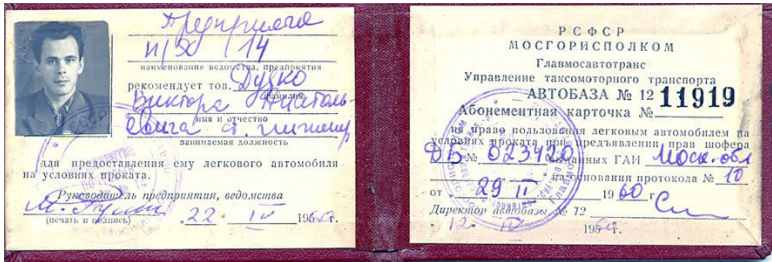 Предприятие
п/я 14
наименование ведомства, предприятия
рекомендует тов. Дудко
фамилия
Виктора Анатоль-
евича ст. инженер
имя и отчество
занимаемая должность
для предоставления ему легкового автомобиля
на условиях проката.
Руководитель предприятия, ведомства
(печать и подпись) 22 IV 195 г.
РСФСР
МОСГОРИСПОЛКОМ
Главмосавтотранс
Управление таксомоторного транспорта
АВТОБАЗА № 12
Абонементная карточка № 11919
на право пользования легковым автомобилем на
условиях проката при предъявлении прав шофера
ДБ № выданных ГАИ Моск. обл
на основании протокола № 10
от 29 II 1960 г.
Директор автобазы № 12
12 IV 195 г.